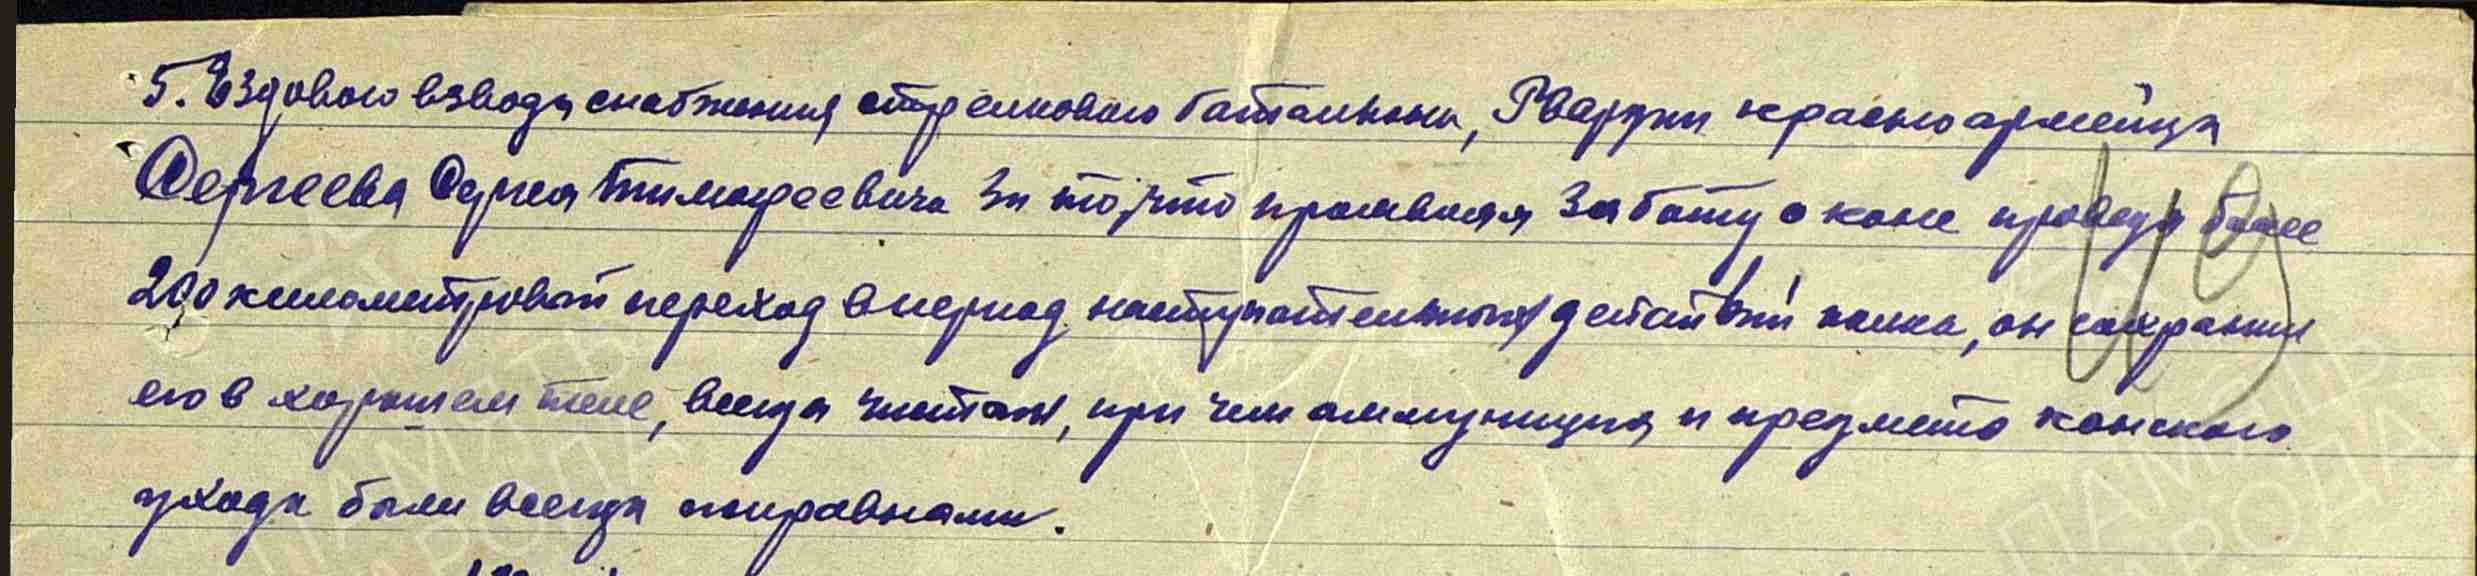 5. Ездового взвода снабжения стрелкового баталиона, Гвардии красноармейца
Сергеева Сергея Тимофеевича за то, что проявляя заботу о коне проведя более
200 километровый переход в период наступательных действий полка, он сохранил
его в хорошем теле, всегда чистым, при чем аммуниция и предмета конского
ухода были всегда исправными.
ПАМЯТЬ НАРОДА
ПАМЯТЬ НАРОДА